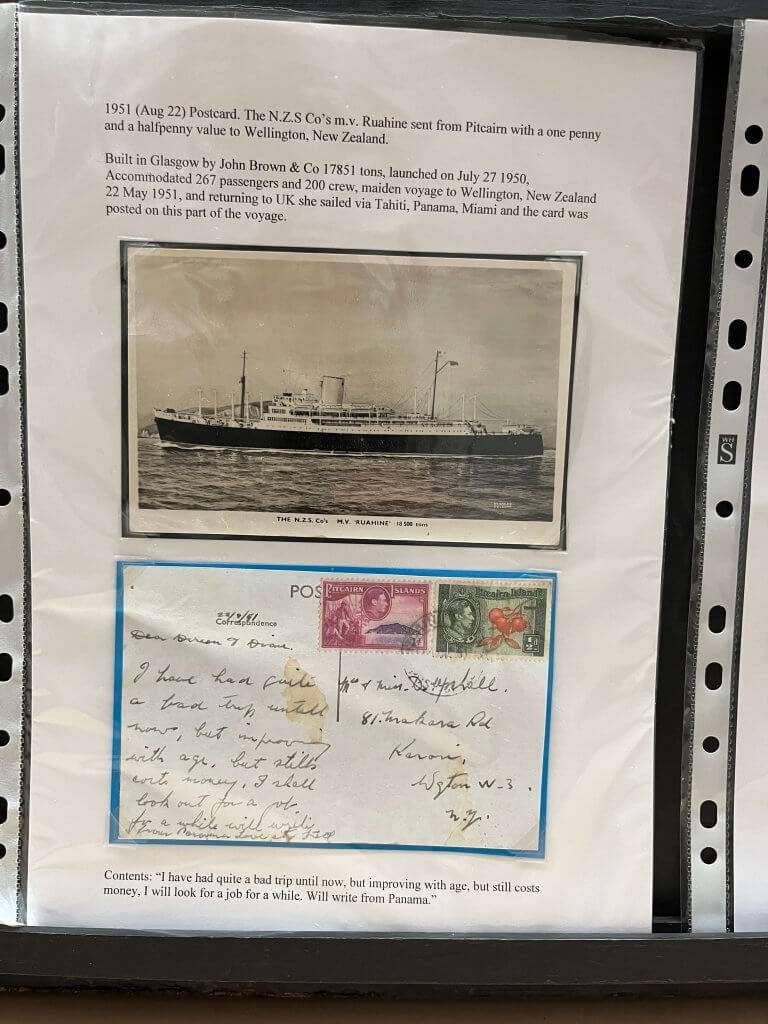 1951 (Aug 22) Postcard. The N.Z.S Co's m.v. Ruahine sent from Pitcairn with a one penny
and a halfpenny value to Wellington, New Zealand.
Built in Glasgow by John Brown & Co 17851 tons, launched on July 27 1950,
Accommodated 267 passengers and 200 crew, maiden voyage to Wellington, New Zealand
22 May 1951, and returning to UK she sailed via Tahiti, Panama, Miami and the card was
posted on this part of the voyage.
THE N.Z.S. Co's M.V. 'RUAHINE' 18 500 tons
POS
PITCAIRN ISLANDS
Pitcairn Islands
½d
22/8/51
Correspondence
Dear & Diane.
I have had quite
a bad trip untill
now, but improving
with age, but still
costs money, I shall
look out for a job
for a while will write
from Panama Love
Mrs & Miss
81 Makara Rd
Karori,
Wgton W-3.
N.Z.
WH
S
Contents: “I have had quite a bad trip until now, but improving with age, but still costs
money, I will look for a job for a while. Will write from Panama.”